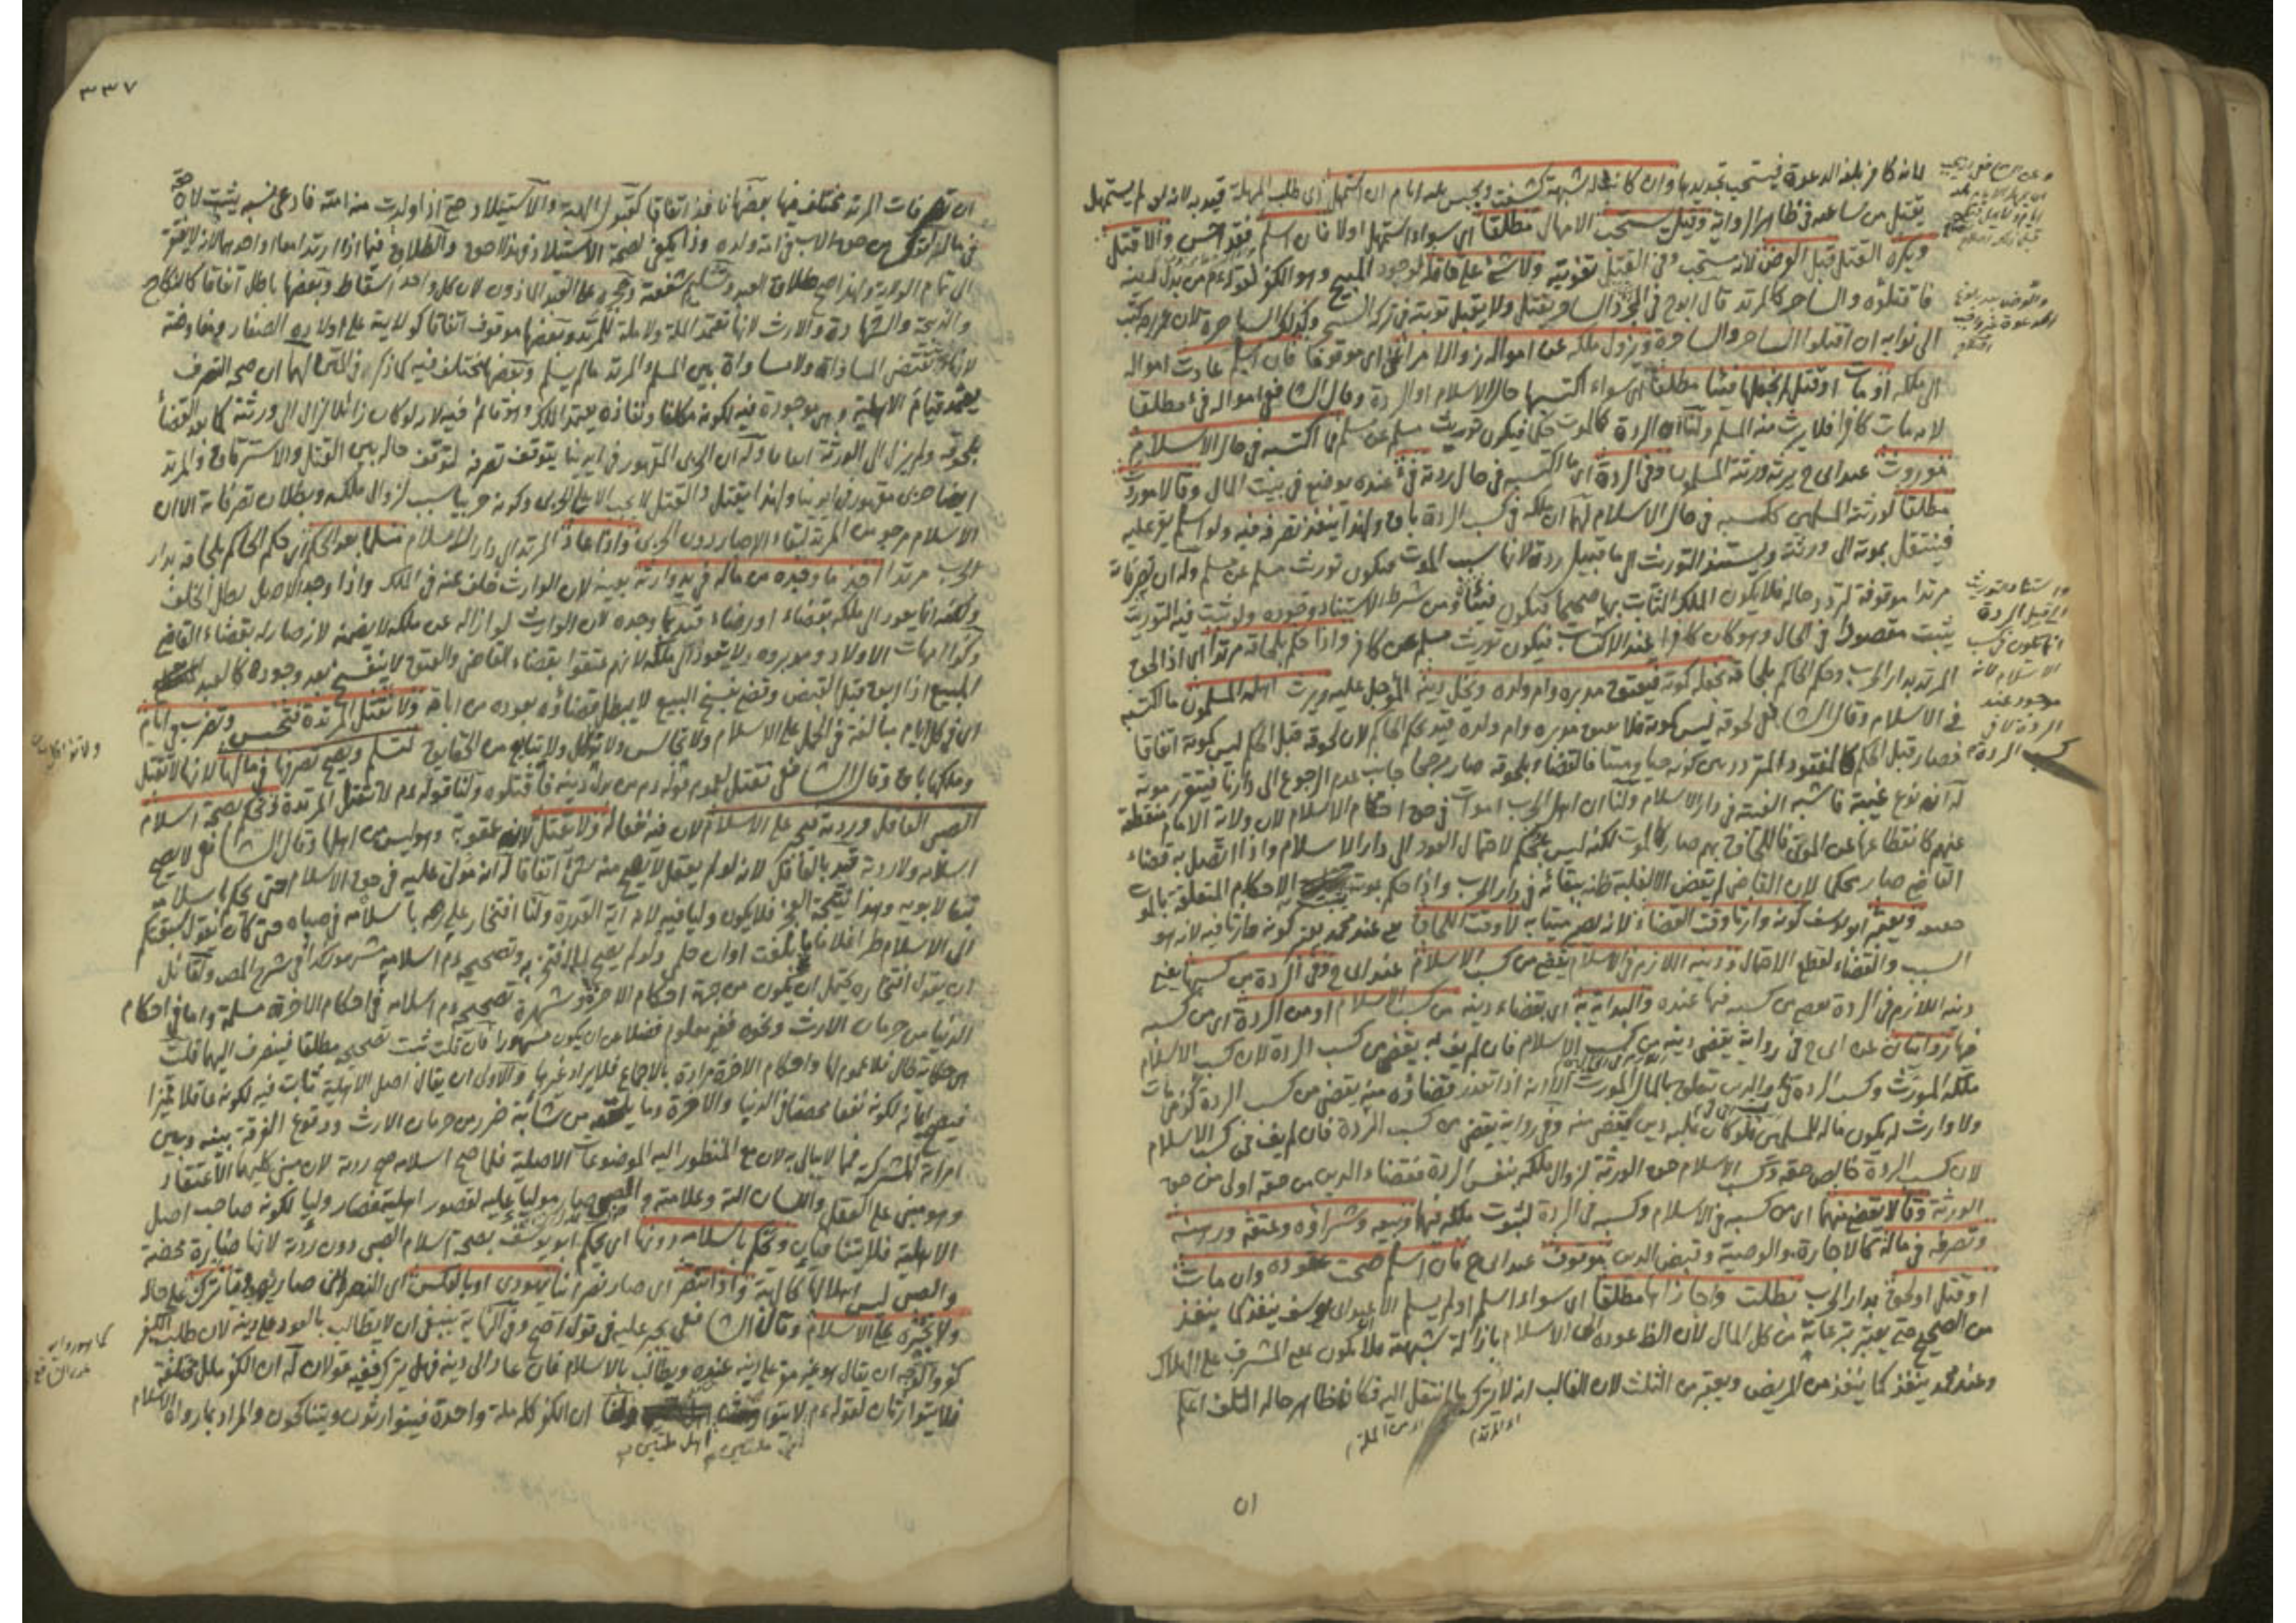 لانه كافر بلغه الدعوة فيستحب تجديدها وان كانت له شبهة كشفت ويحبس ثلثة ايام ان استمهل اى طلب المهلة قيد به لانه لو لم يستمهل
يقتل من ساعته فى ظاهر الرواية وقيل يستحب الامهال مطلقا اى سواء استمهل اولا فان اسلم فقد احسن والا قتل
ويكره القتل قبل العرض لانه مستحب وفى القتل تفويته ولا شئ على قاتله لوجود المبيح وهو الكفر لقوله عم من بدل دينه
فاقتلوه والساحر كالمرتد قال ابو ح فى المجرد الساحر يقتل ولا يقبل توبته فى تركه السحر وكذلك الساحرة لان عمر رض كتب
الى نوابه ان اقتلوا الساحر والساحرة ويزول ملكه عن امواله زوالا مراعى اى موقوفا فان اسلم عادت امواله
الى ملكه او مات او قتل لم نجعلها فيئا مطلقا اى سواء اكتسبها حال الاسلام او الردة وقال الشافعى امواله فئ مطلقا
لانه مات كافرا فلا يرث منه المسلم ولنا ان الردة كالموت حكما فيكون توريث مسلم عن مسلم فما اكتسبه فى حال الاسلام
موروث عند ابى ح يرثه ورثته المسلمون وفى الردة اى ما اكتسبه فى حال ردته فئ عنده يوضع فى بيت المال وقالا موروث
مطلقا لورثته المسلمين ككسبه فى حال الاسلام لهما ان ملكه فى كسب الردة باق ولهذا ينفذ تصرفه فيه ولو اسلم يقر عليه
فينتقل بموته الى ورثته ويستند التوريث الى ما قبيل ردته لانها سبب الموت فيكون توريث مسلم عن مسلم وله ان تصرفاته
مرتدا موقوفة لتردد حاله فلا يكون الملك الثابت بها صحيحا فيكون فيئا ومن شرط الاستناد وجوده ولو ثبت فيه التوريث
يثبت مقصورا فى الحال وهو كان كافرا عند الاكتساب فيكون توريث مسلم عن كافر واذا حكم بلحاقه مرتدا اى اذا لحق
المرتد بدار الحرب وحكم الحاكم بلحاقه نجعله كموته فيعتق مدبره وام ولده ويحل دينه المؤجل عليه ويرث اهله المسلمون ما اكتسبه
فى الاسلام وقال الشافعى لحوقه ليس كموته فلا يعتق مدبره وام ولده قيد بحكم الحاكم لان لحوقه قبل الحكم ليس كموته اتفاقا
فصار قبل الحكم كالمفقود المتردد بين كونه حيا وميتا فالقضاء بلحوقه صار مرجحا جانب عدم الرجوع الى دارنا فيتقرر موته
له انه نوع غيبة فاشبه الغيبة فى دار الاسلام ولنا ان اهل الحرب اموات فى حق احكام الاسلام لان ولاية الامام منقطعة
عنهم كانقطاعها عن الموتى فاللحاق بهم صار كالموت لكنه ليس بمحكم لاحتمال العود الى دار الاسلام واذا اتصل به قضاء
القاضى صار محكما لان القاضى لم يقض الا لغلبة ظنه ببقائه فى دار الحرب واذا حكم بموته الاحكام المتعلقة بالموت
ويعتبر ابو يوسف كونه وارثا وقت القضاء لانه يصير ميتا به لا وقت اللحاق يعنى عند محمد يعتبر كونه وارثا فيه لانه هو
السبب والقضاء لقطع الاحتمال ودينه اللازم فى الاسلام يقضى من كسب الاسلام عند ابى ح وفى الردة من كسبها يعنى
دينه اللازم فى الردة يقضى من كسبه فيها عنده والبداية به اى بقضاء دينه من كسب الاسلام او من الردة اى من كسبه
فيها روايتان عن ابى ح فى رواية يقضى دينه من كسب الاسلام فان لم يف به يقضى من كسب الردة لان كسب الاسلام
ملكه الموروث وكسب الردة والدين يتعلق بالمال الموروث الا انه اذا تعذر قضاؤه منه يقضى من كسب الردة كذمى مات
ولا وارث له يكون ماله للمسلمين فلو كان عليه دين يقضى منه وفى رواية يقضى من كسب الردة فان لم يف فمن كسب الاسلام
لان كسب الردة خالص حقه وكسب الاسلام حق الورثة لزوال ملكه بنفس الردة فقضاء الدين من حقه اولى من حق
الورثة وقالا يقضى منهما اى من كسبه فى الاسلام وكسبه فى الردة لثبوت ملكه فيهما وبيعه وشراؤه وعتقه ورهنه
وتصرفه فى ماله كالاجارة والوصية وقبض الدين موقوف عند ابى ح فان اسلم صحت عقوده وان مات
او قتل او لحق بدار الحرب بطلت واجازاها مطلقا اى سواء اسلم او لم يسلم الا عند ابى يوسف ينفذ كما ينفذ
من الصحيح حتى يعتبر تبرعاته من كل المال لان الظ عوده الى الاسلام بازالة شبهته فلا يكون كالمشرف على الهلاك
وعند محمد ينفذ كما ينفذ من المريض ويعتبر من الثلث لان الغالب انه لا يترك ما انتقل اليه فكان ظاهر حاله التلف اعلم
ان
٣٣٧
ان تصرفات المرتد مختلف فيها بعضها نافذ اتفاقا كقبول الهبة والاستيلاد حتى اذا ولدت منه امته فادعى نسبه يثبت لان حقه
فى ماله اقوى من حق الاب فى امة ولده وذا يكفى لصحة الاستيلاد فهذا احق والطلاق فيما اذا ارتدا معا او احدهما لانه لا يفتقر
الى تمام الولاية ولهذا صح طلاق العبد وتسليم شفعته وحجره على العبد الماذون لان كل واحد اسقاط وبعضها باطل اتفاقا كالنكاح
والذبيحة والشهادة والارث لانها تعتمد الملة ولا ملة للمرتد وبعضها موقوف اتفاقا كولايته على اولاده الصغار ومفاوضته
لانها تقتضى المساواة ولا مساواة بين المسلم والمرتد ما لم يسلم وبعضها مختلف فيه كما ذكر فى المتن لهما ان صحة التصرف
يعتمد قيام الاهلية وهى موجودة فيه لكونه مكلفا ونفاذه يعتمد الملك وهو قائم فيه لانه لو كان زائلا لزال الى ورثته كما بعد القضاء
بلحوقه ولم يزل الى الورثة اتفاقا وله ان الحربى المقهور فى ايدينا يتوقف تصرفه لتوقف حاله بين القتل والاسترقاق والمرتد
ايضا حربى مقهور فى ايدينا ولهذا يقتل والقتل لا يجب الا على الحربى وكونه حربيا سبب لزوال ملكه وبطلان تصرفاته الا ان
الاسلام مرجو من المرتد لبقاء الاجبار دون الحربى واذا عاد المرتد الى دار الاسلام مسلما بعد الحكم اى حكم الحاكم بلحاقه بدار
الحرب مرتدا اخذ ما وجده من ماله فى يد وارثه بعينه لان الوارث خلف عنه فى الملك واذا وجد الاصيل بطل الخلف
ولكنه انما يعود الى ملكه بقضاء او رضاء قيد بما وجده لان الوارث لو ازاله عن ملكه لا يضمنه لانه صار له بقضاء القاضى
وكذا امهات الاولاد ومدبروه ولا يعود الى ملكه لانهم عتقوا بقضاء القاضى والعتق لا ينفسخ بعد وجوده كالعبد
المبيع اذا ابق قبل القبض وقضى بفسخ البيع لا يبطل قضاؤه بعوده من اباقه ولا نقتل المرتدة فتحبس وتضرب فى ايام
اى فى كل ايام مبالغة فى الحمل على الاسلام ولا تجالس ولا تؤاكل ولا تبايع من الحقايق لتسلم ويصح تصرفها فى مالها لانها لا تقتل
وملكها باق وقال الشافعى تقتل لعموم قوله عم من بدل دينه فاقتلوه ولنا قوله عم لا تقتل المرتدة ونحكم بصحة اسلام
الصبى العاقل وردته فيجبر على الاسلام لان فيه نفعا له ولا يقتل لانه عقوبة وهو ليس من اهلها وقال الشافعى لا يصح
اسلامه ولا ردته قيد بالعاقل لانه لو لم يعقل لا يصح منه شئ اتفاقا له انه مولى عليه فى حق الاسلام حتى يحكم باسلامه
تبعا لابويه وهذا نتيجة العجز فلا يكون وليا فيه لانه اية القدرة ولنا افتخار على رض باسلامه فى صباه حتى كان يقول سبقتكم
الى الاسلام طرا غلاما ما بلغت اوان حلمى ولو لم يصح لما افتخر به وتصحيحه عم اسلامه مشهور كذا فى شرح المص ولقائل
ان يقول افتخاره يحتمل ان يكون من جهة احكام الاخرة وشهرة تصحيحه عم اسلامه فى احكام الاخرة مسلمة واما فى احكام
الدنيا من حرمان الارث ونحوه فغير معلوم فضلا عن ان يكون مشهورا فان قلت ثبت تصحيحه مطلقا فينصرف اليهما قلت
هى حكاية حال فلا عموم لها واحكام الاخرة مرادة بالاجماع فلا يراد غيرها والاولى ان يقال اصل الاهلية ثابت فيه لكونه عاقلا مميزا
فيصح ايمانه لكونه نفعا محضا فى الدنيا والاخرة وما يلحقه من شائبة ضرر من حرمان الارث ووقوع الفرقة بينه وبين
امراته المشركة فمما لا يبالى به لان المنظور اليه الموضوعات الاصلية فلما صح اسلامه صح ردته لان مبنى كليهما الاعتقاد
وهو مبنى على العقل واللسان الته وعلامته والصبى صار موليا عليه لقصور اهليته فصار وليا لكونه صاحب اصل
الاهلية فلا يتنافيان ويحكم باسلامه دونها اى يحكم ابو يوسف بصحة اسلام الصبى دون ردته لانها ضارة محضة
والصبى ليس اهلا لها كالهبة واذا تنصر اى صار نصرانيا يهودى او بالعكس اى النصرانى صار يهوديا فترك على حاله
ولا نجبره على الاسلام وقال الشافعى يجبر عليه فى قول اصح وفى النهاية ينبغى ان لا يطالب بالعود على دينه لان طلب الكفر
كفر والوجه ان يقال هو غير مقر على دينه عنده ويطالب بالاسلام فان عاد الى دينه فهل يترك ففيه قولان له ان الكفر ملل مختلفة
فلا يتوارثان لقوله عم لا يتوارث ولنا ان الكفر كله ملة واحدة فيتوارثون ويتناكحون والمراد بما رواه الاسلام
اهل ملتين